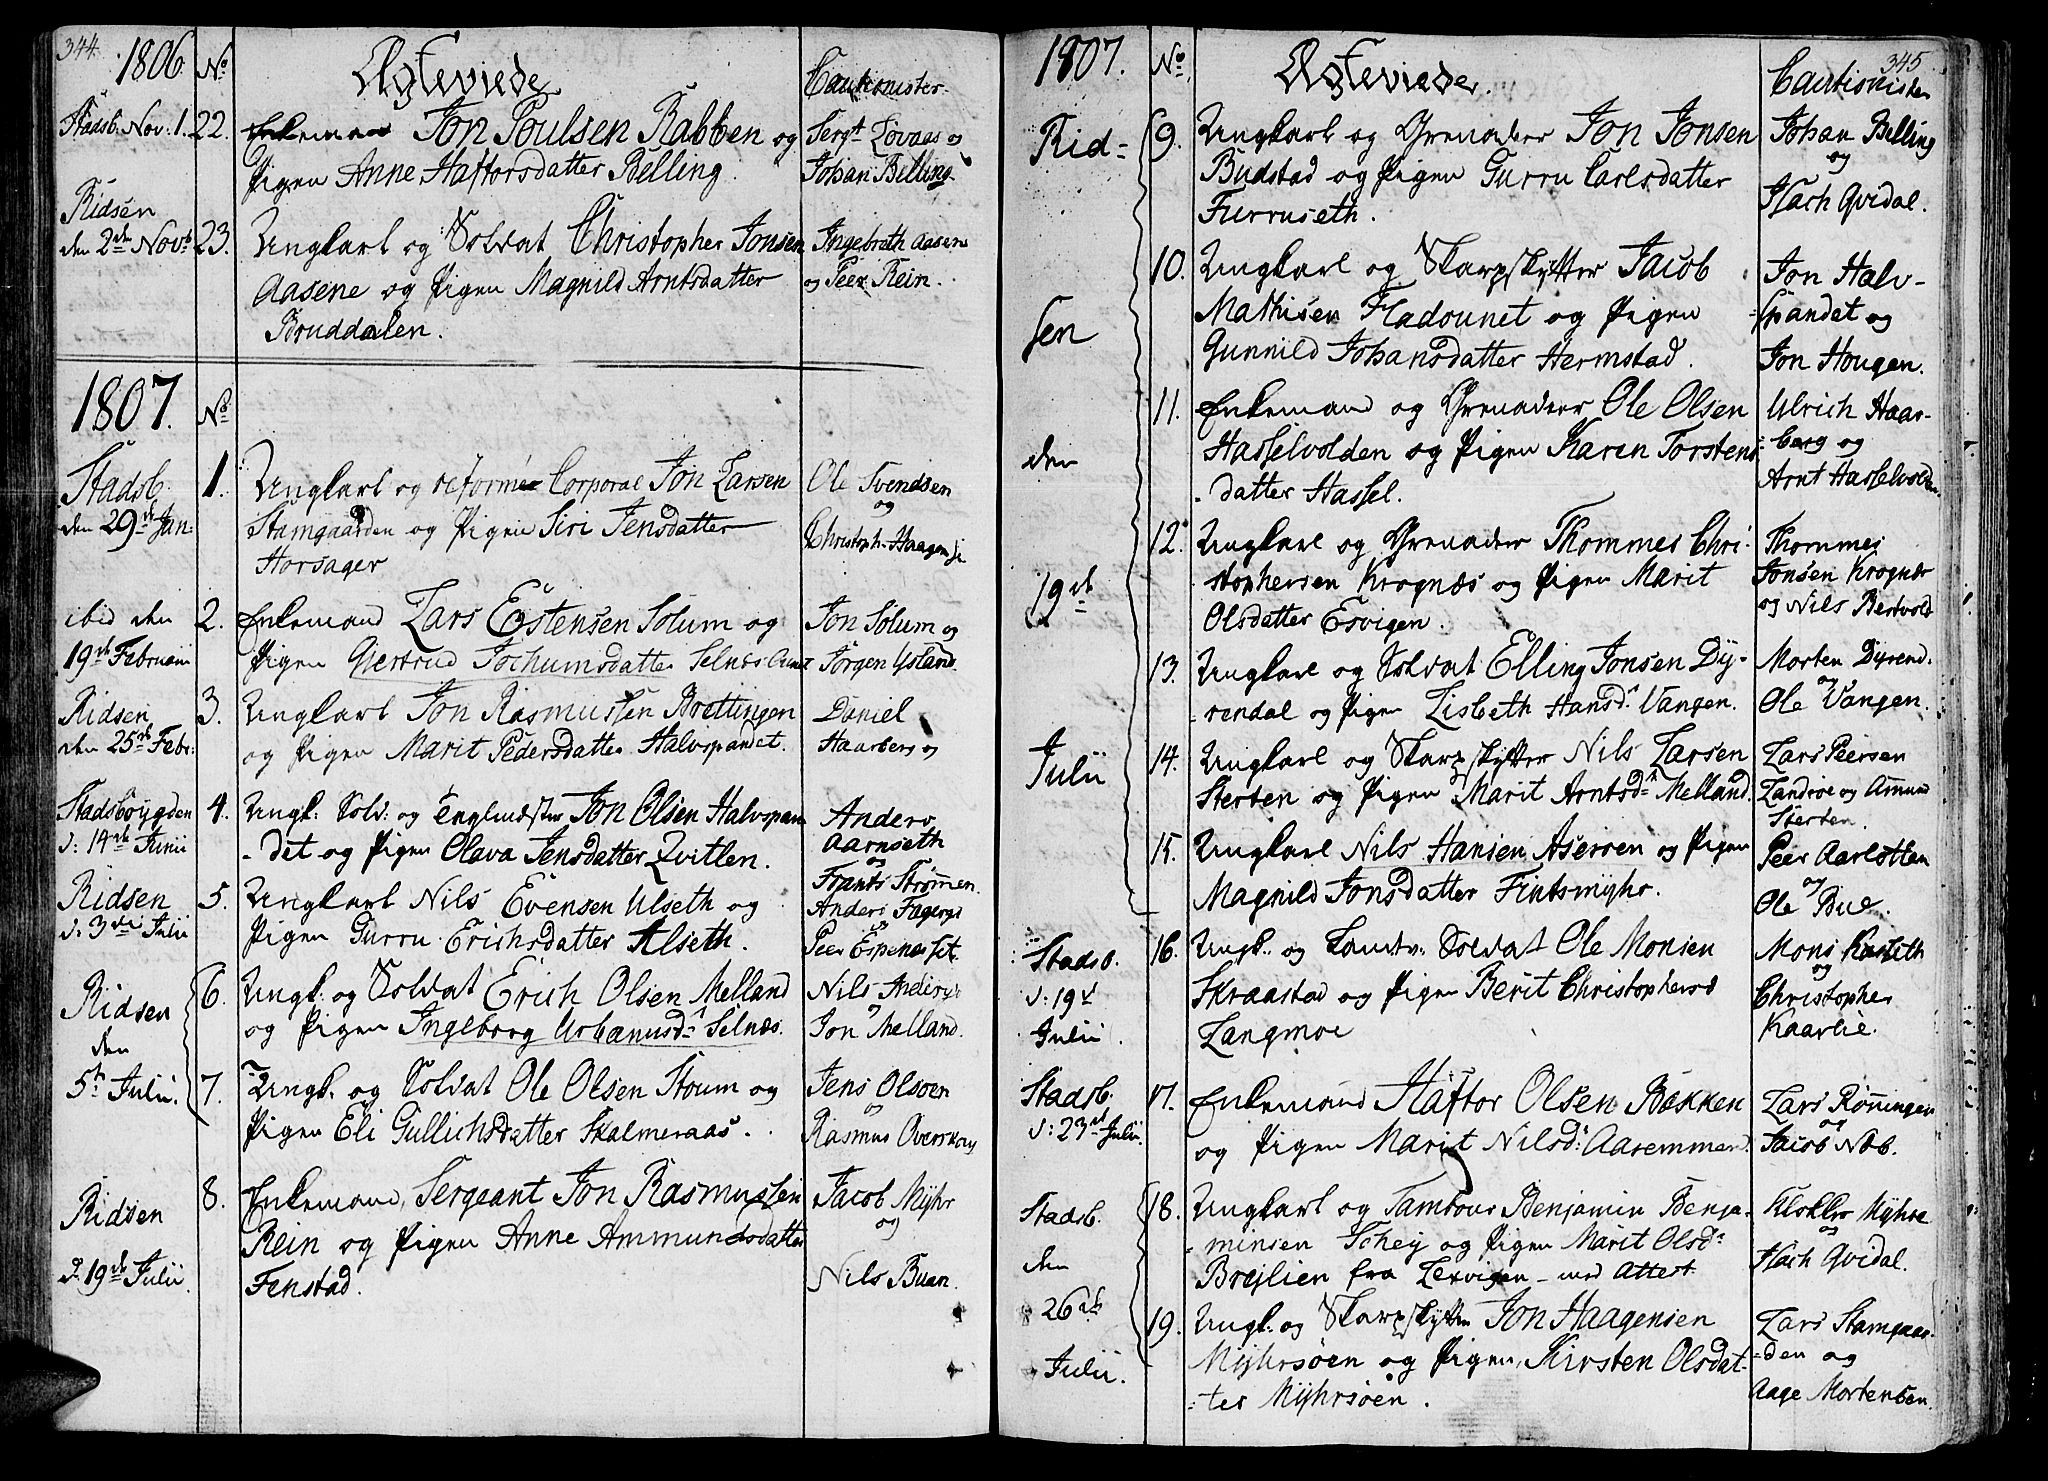 344.
1806
No
Ægteviede
Cautionister
Stadsb. Nov: 1.
22.
Enkemand Jon Poulsen Rabben og
Pigen Anne Haftorsdatter Belling.
Sergt. Lövaas og
Johan Belling
Ridsen
den 2den Novb
23.
Ungkarl og Soldat Christopher Jonsen
Aasene og Pigen Magnild Arntsdatter
Bruddalen.
Ingebrgth Aasene
og Peer Rein.
1807.
No
Stadsb.
den 29de Jan:
1.
Ungkarl og reformé Corporal Jon Larsen
Stamgaarden og Pigen Siri Jensdatter
Horsager
Ole Svendsen
og
Christoph. Haagens
ibid den
19de Februarii
2.
Enkemand Lars Estensen Solum og
Pigen Giertrud Jochumsdatter Selnes
Jon Solum og
Jörgen Ysland.
Ridsen
den 25de Febr:
3.
Ungkarl Jon Rasmussen Brettingen
og Pigen Marit Pedersdatter Halvspandet.
Daniel
Haarberg og
Stadsböygden
d: 14de Junii
4.
Ungk: Sold: og Jon Olsen Halvspan
-det og Pigen Olava Jensdatter Qvitlen.
Anders
Aarnseth
og
Frants Strømmen.
Ridsen
d: 3die Julii
5.
Ungkarl Nils Evensen Ulseth og
Pigen Gurru Erichsdatter Alseth.
Anders Fagerys
og
Peer Espenes
Ridsen
den
5te Julii.
6.
Ungk: og Soldat Erich Olsen Melland
og Pigen Ingeborg Urbanusdr Selnæs.
Nils
og
Jon Melland.
7.
Ungk. og Soldat Ole Olsen Stoum og
Pigen Eli Gullichsdatter Skalmeraas.
Jens Olsöen
og
Rasmus Overskou
Ridsen
d. 19de Julii
8.
Enkemand, Sergeant Jon Rasmussen
Rein og Pigen Anne Ammundsdatter
Fenstad.
Jacob Myhr
og
Nils Buan.
1807.
No
Ægteviede.
345.
Cautionister
Rid-
sen
den
19de
Julii
9.
Ungkarl og Grenadeer Jon Jonsen
Budstad og Pigen Gurru Carlsdatter
Furruseth.
Johan Belling
og
Hach Qvidal.
10.
Ungkarl og Skarpskytter Jacob
Mathisen Fladounet og Pigen
Gunnild Johansdatter Hermstad.
Jon Halv-
-spandet og
Jon Hougen.
11.
Enkemand og Grenadeer Ole Olsen
Hasselvolden og Pigen Karen Torstens
-datter Hassel.
Ulrich Haar-
berg og
Arnt Hasselvolden
12.
Ungkarl og Grenadeer Thommes Chri-
stophersen Krognæs og Pigen Marit
Olsdatter Esvigen.
Thommes
Jonsen Krognæs
og Nils Bertvold
13.
Ungkarl og Soldat Elling Jonsen Dy-
-rendal og Pigen Lisbeth Hansdr Vangen.
Morten Dyrend.
og
Ole Vangen.
14.
Ungkarl og Skarpskytter Nils Larsen
Sterten og Pigen Marit Arntsdr Melland.
Lars Peersen
Landröe og Amund
Sterten.
15.
Ungkarl Nils Hansen Aseröen og Pigen
Magnild Jonsdatter Fintsmyhr.
Peer Aarlotten
og
Ole Bue.
Stadsb.
d: 19de
Julii.
16.
Ungk: og Landv: Soldat Ole Monsen
Skraastad og Pigen Berit Christophersd
Langmoe
Mons
og
Christopher
Kaarlie.
Stadsb.
d: 23de Julii.
17.
Enkemand Haftor Olsen Bækken
og Pigen Marit Nilsd: Aasemmen.
Lars Rönningen
og
Jacob Næb.
Stadsb.
den
26de
Julii.
18.
Ungkarl og Tambour Benjamin Benja-
-minsen Schej og Pigen Marit Olsdr
Brejlien fra Lexvigen - med Attest
Klokker Myhre
og
Hach Qvidal.
19.
Ungk: og Skarpskytter Jon Haagensen
Myhrsöen og Pigen Kirsten Olsdat-
-ter Myhrsöen.
Lars Stamgaar-
-den og
Aage Mortensen.